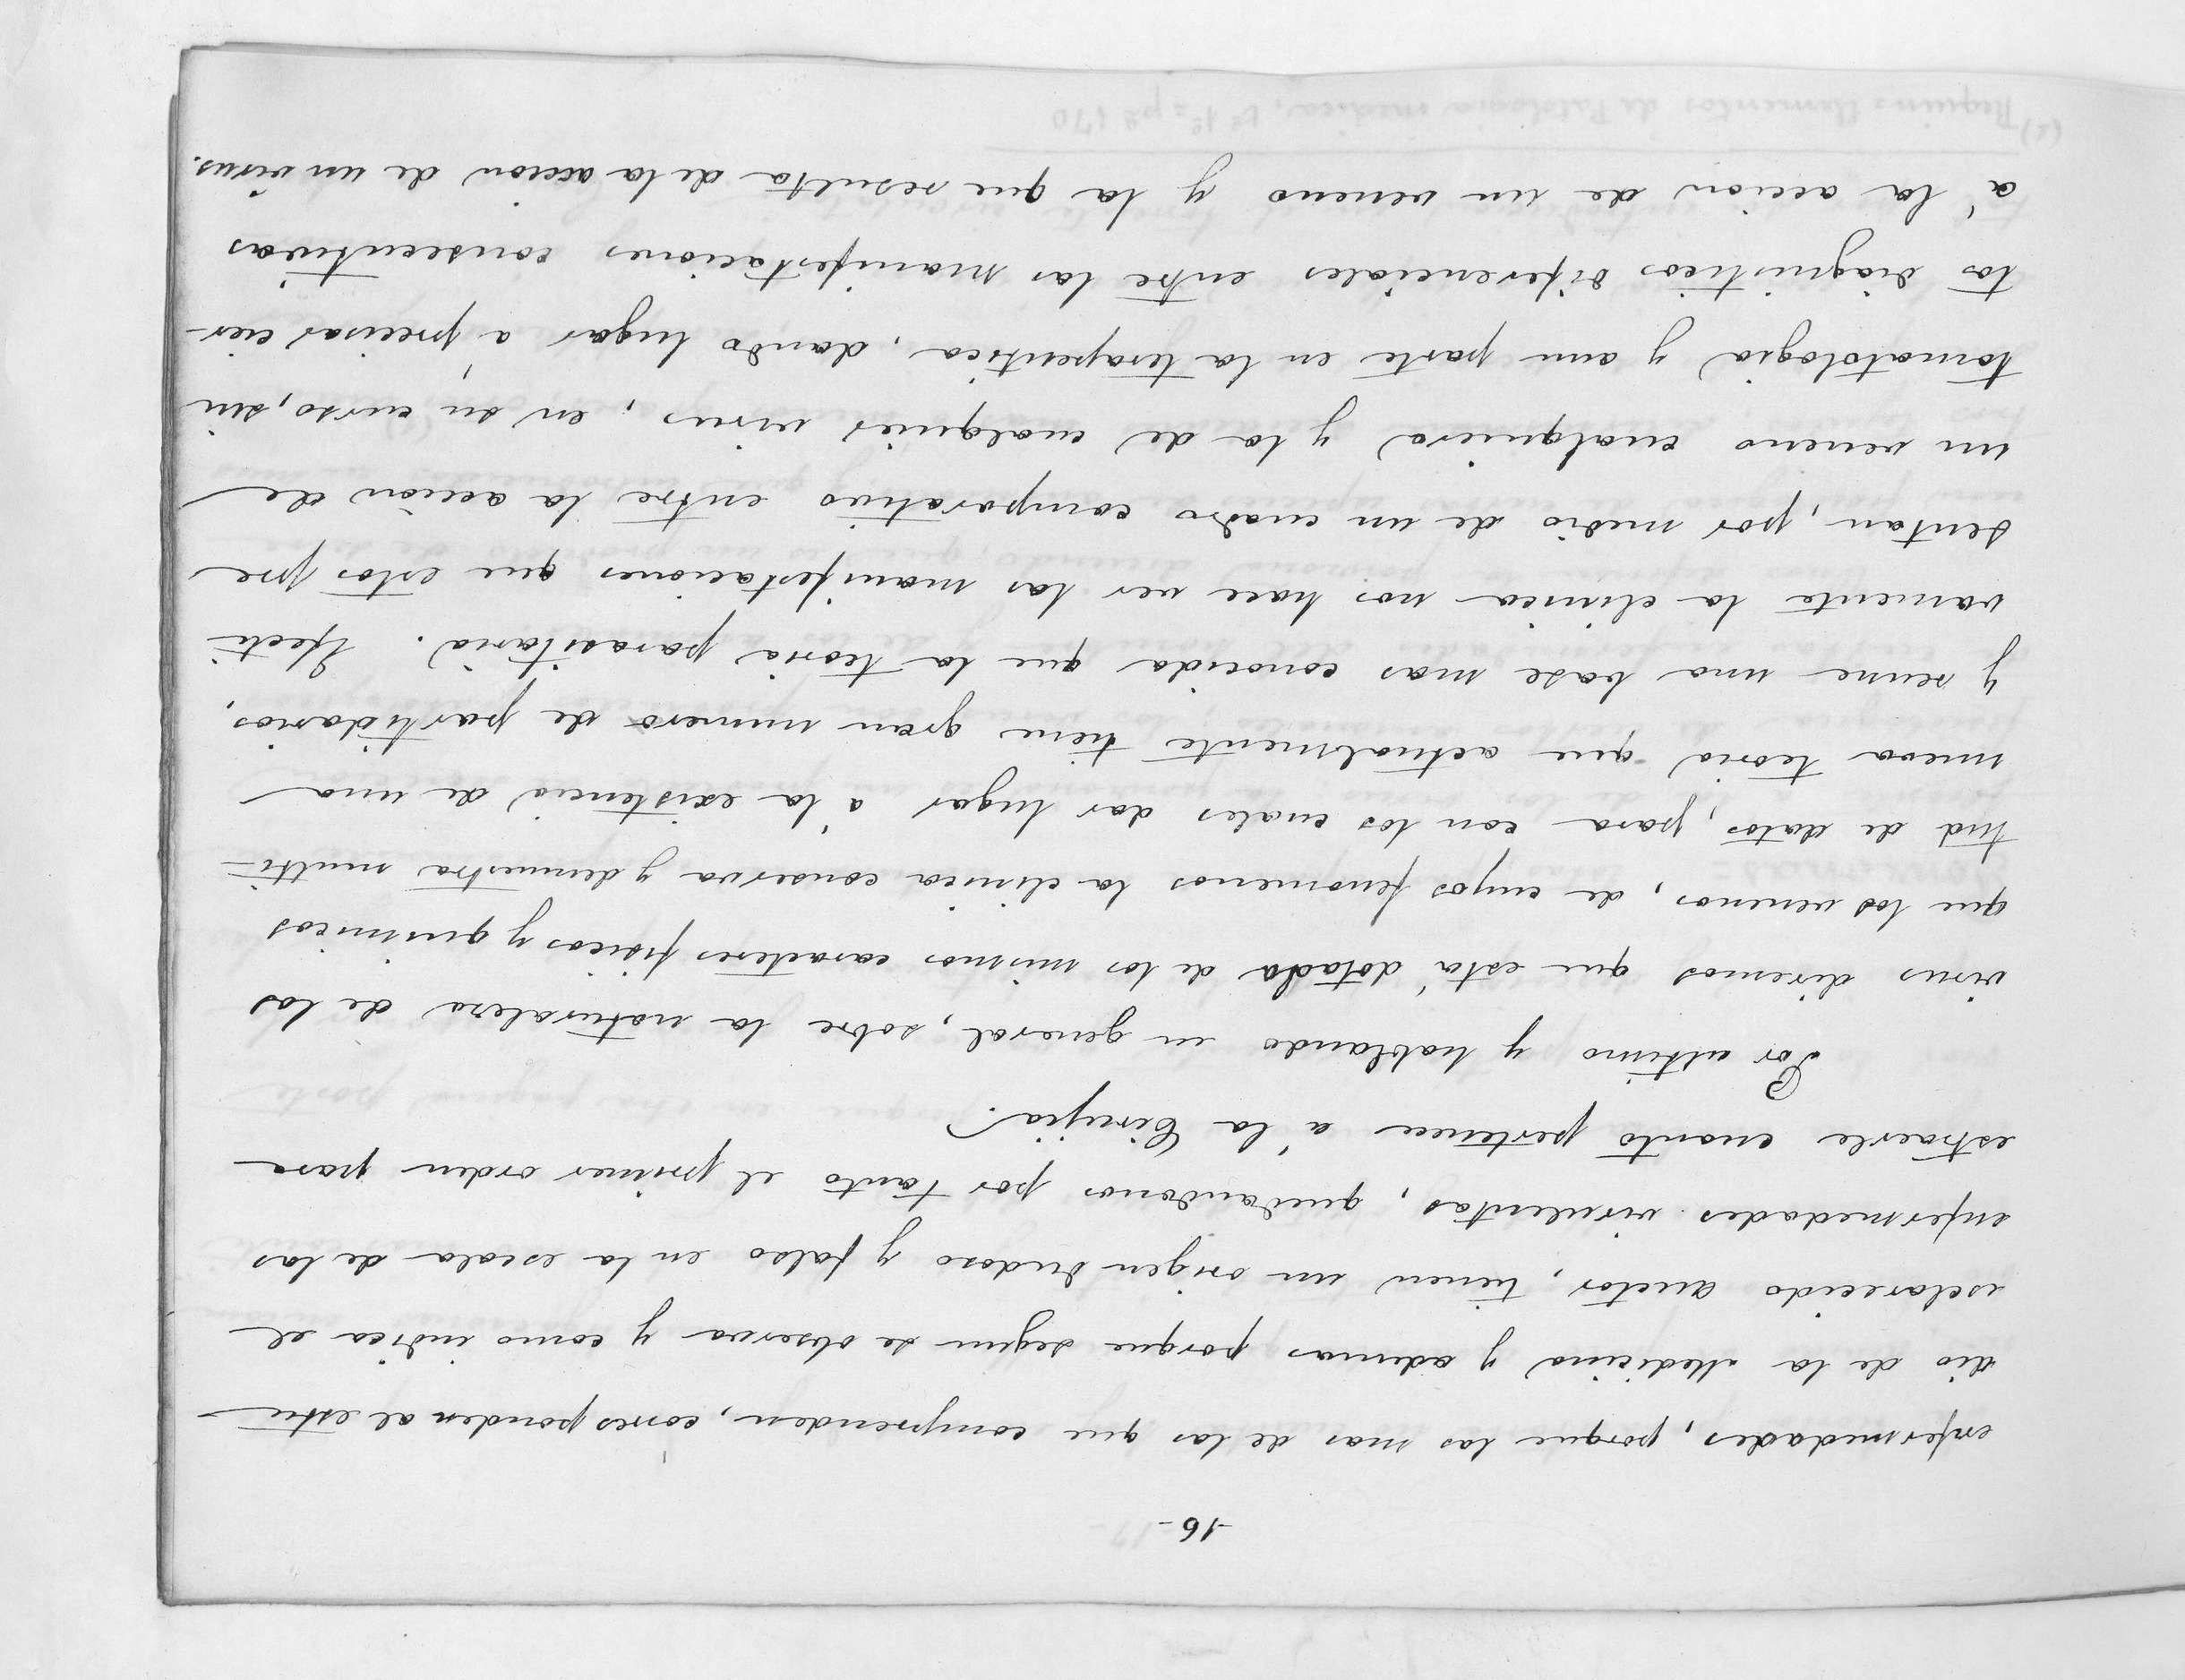 -16-
enfermedades, porque las mas de las que comprenden, corresponden al estu-
dio de la Medicina y ademas porque segun se observa y como indica el
esclarecido auctor, tienen un origen dudoso y falso en la escala de las
enfermedades virulentas, quedandonos por tanto el primer orden para
estraerle cuanto pertenece á la Cirujia.
Por ultimo y hablando en general, sobre la naturaleza de los
virus diremos que está dotada de los mismos caracteres fisicos y quimicos
que los venenos, de cuyos fenomenos la clinica conserva y demuestra multi-
tud de datos, para con los cuales dar lugar á la existencia de una
nueva teoria que actualmente tiene gran numero de partidarios,
y reune una base mas conocida que la teoria parasitaria. Efecti
vamente la clinica nos hace ver las manifestaciones que estos pre
sentan, por medio de un cuadro comparativo entre la accion de
un veneno cualquiera y la de cualquier virus, en su curso, sin
tomatologia y aun parte en la terapeutica, dando lugar á precisar cier-
tos diagnisticos diferenciales entre las manifestaciones consecutivas
á la accion de un veneno y la que resulta de la accion de un virus.
(1) Requin = Elementos de Patologia medica, tº 1º = pº 170